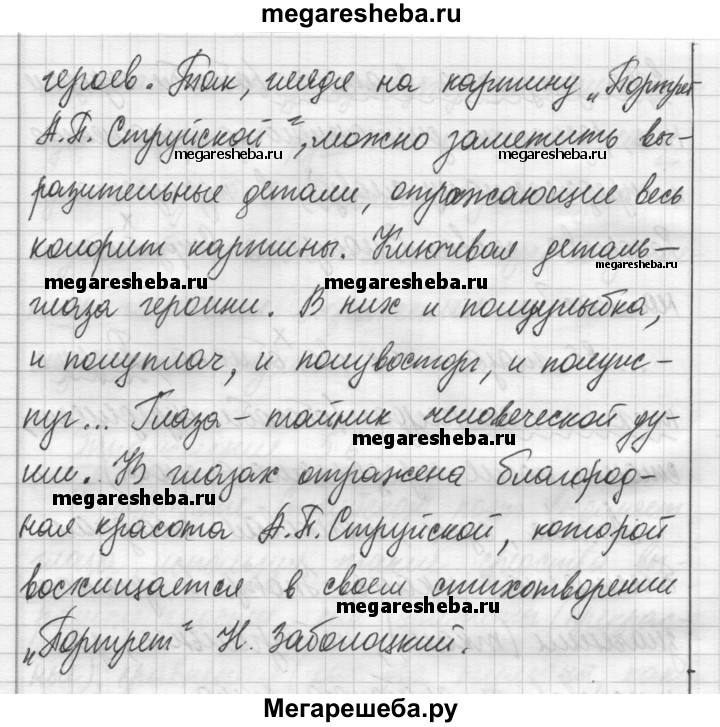 megaresheba.ru
героев. Так, глядя на картину „Портрет
А.П. Струйской“, можно заметить вы-
megaresheba.ru megaresheba.ru
разительные детали, отражающие весь
колорит картины. Ключевая деталь –
megaresheba.ru
megaresheba.ru megaresheba.ru
глаза героини. В них и полуулыбка,
и полуплач, и полувосторг, и полуис-
пуг... Глаза – тайник человеческой ду-
megaresheba.ru
ши. В глазах отражена благород-
megaresheba.ru
ная красота А.П. Струйской, которой
восхищается в своем стихотворении
megaresheba.ru
„Портрет“ Н. Заболоцкий.
Мегарешеба.ру